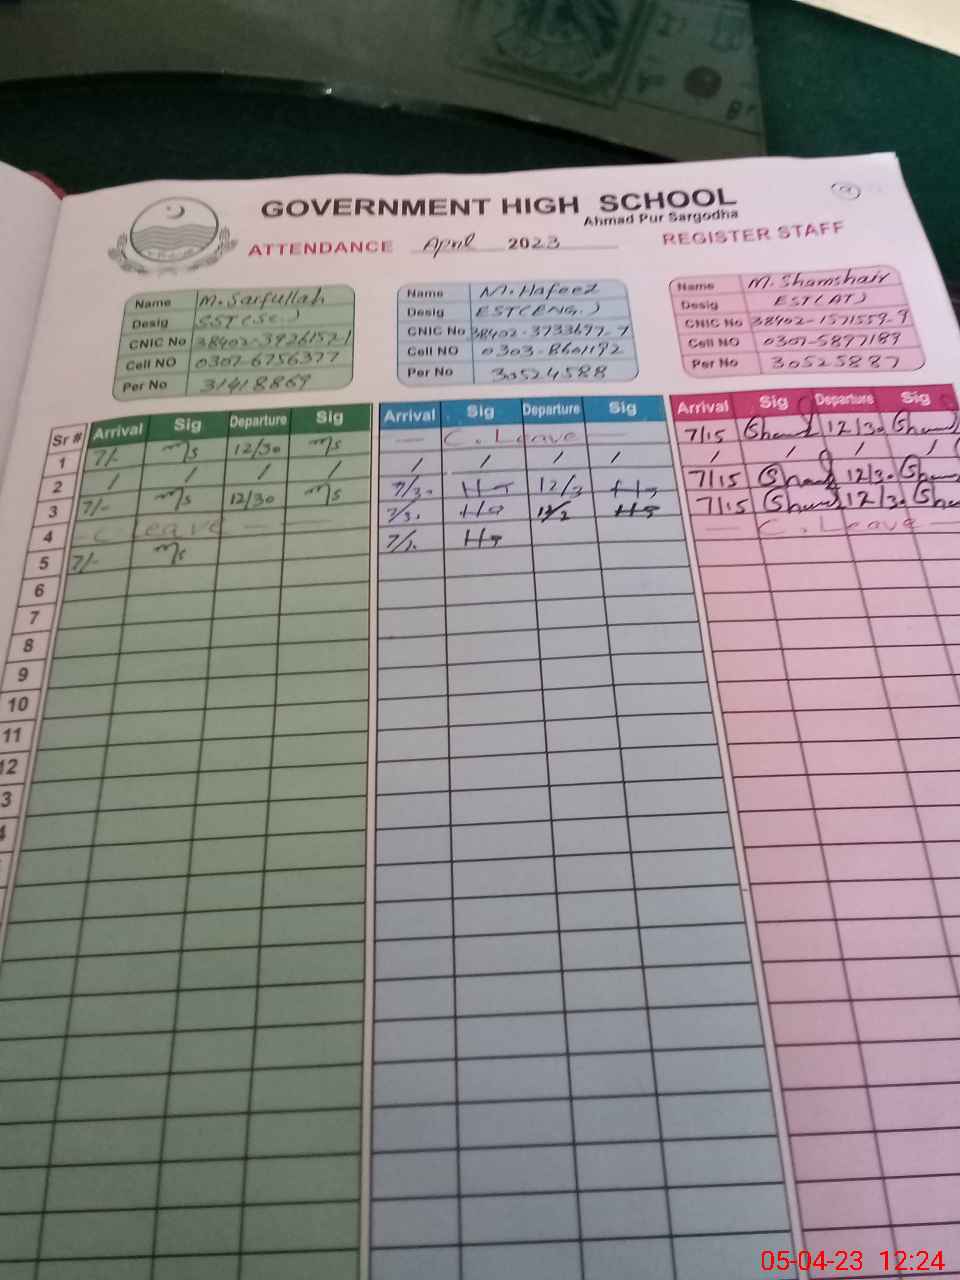 GOVERNMENT HIGH SCHOOL
Ahmad Pur Sargodha
ATTENDANCE April 2023 REGISTER STAFF
Name M. Saifullah
Desig SST (Sc.)
CNIC No 38402-3926152-1
Cell NO 0307-6756377
Per No 31418869
Name M. Hafeez
Desig EST (ENG.)
CNIC No 38402-3733697-7
Cell NO 0303-8601192
Per No 30524588
Name M. Shamshair
Desig EST (AT)
CNIC No 38402-1571559-9
Cell NO 0307-5897189
Per No 30525887
Sr # Arrival Sig Departure Sig Arrival Sig Departure Sig Arrival Sig Departure Sig
1 7/- ms 12/30 ms — C. Leave — 7/15 12/30
2 / / / / / / / / / / / /
3 7/- ms 12/30 ms 7/30 12/3 7/15 12/30
4 — C. Leave — 7/3. 7/15 12/30
5 7/- ms — C. Leave —
6
7
8
9
10
11
12
3
4
05-04-23 12:24